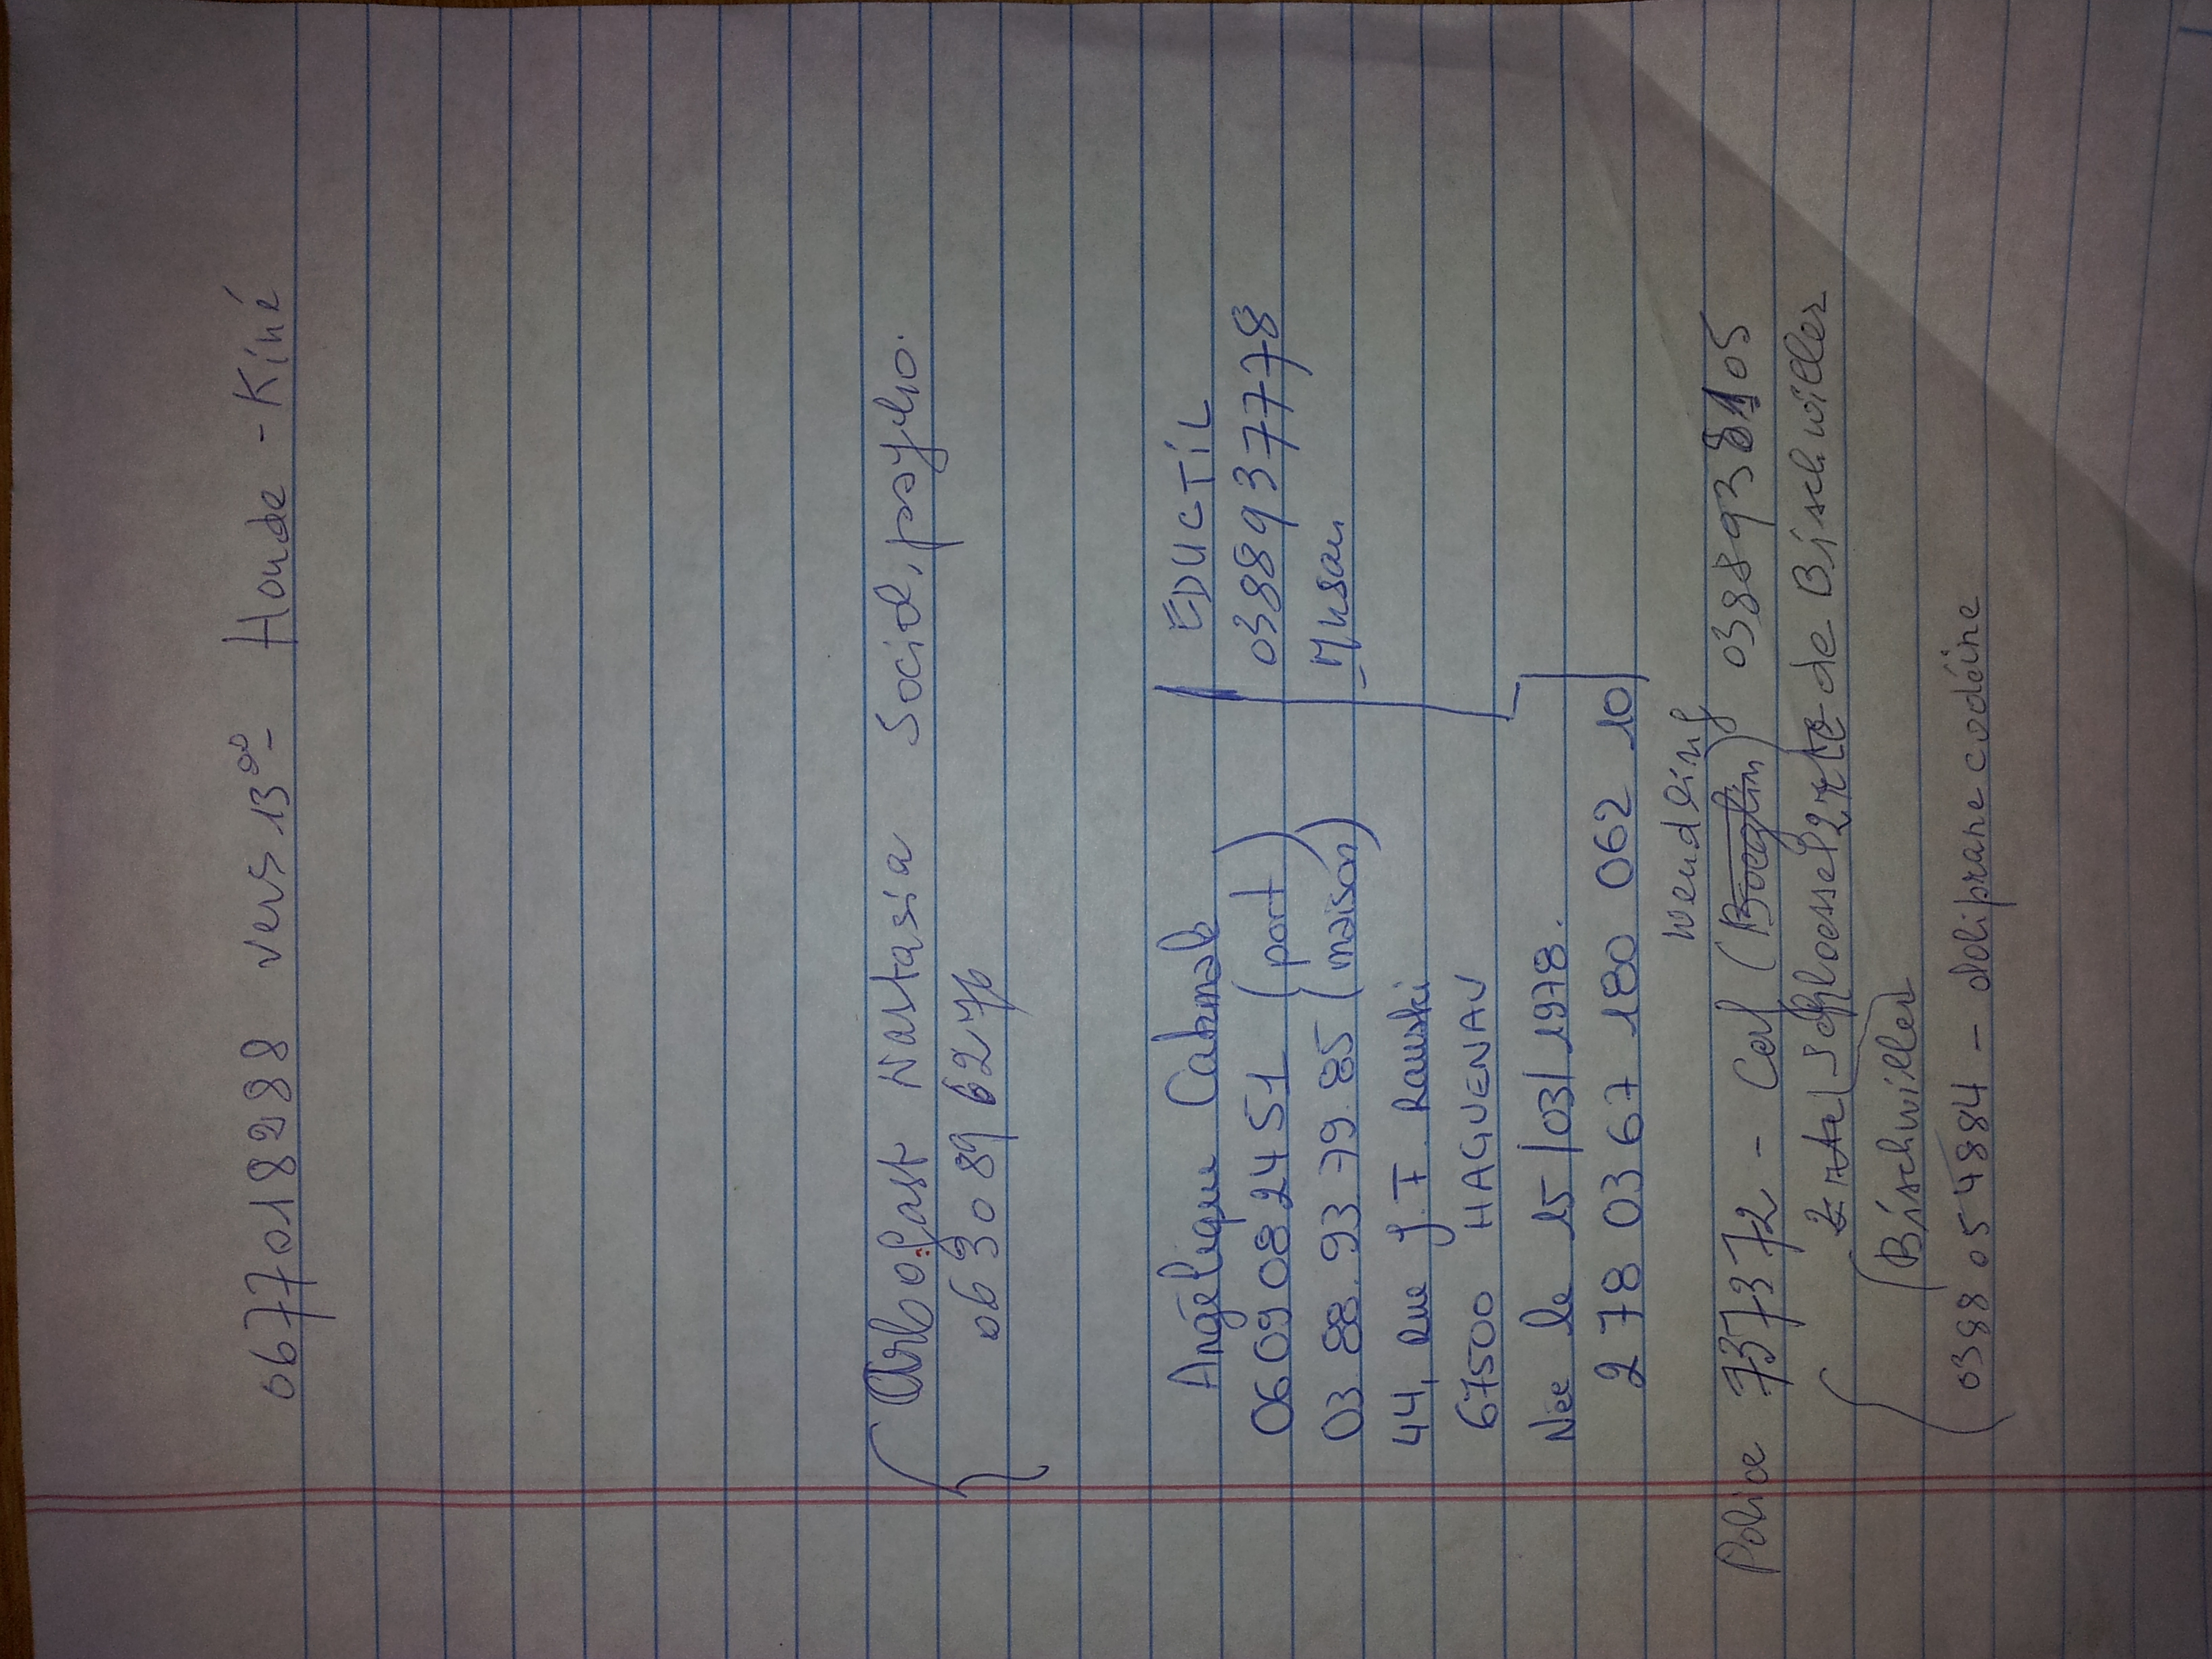 0677018288 vers 13°° Honde - Kiné
Arbogast Nastasia Social, psycho.
0630896276
Angélique Cabmak
0609082451 (port)
03.88.93.79.85 (maison)
44, rue J.F. Rauski
67500 HAGUENAU
Née le 15/03/1978.
2 78 03 67 180 062 10
EDUCTIL
0388937778
- Musau
Wendling
Police 737372 - Cerf 0388938105
Schloessel de Bischwiller
Bischwiller
0388054884 - doliprane codéine